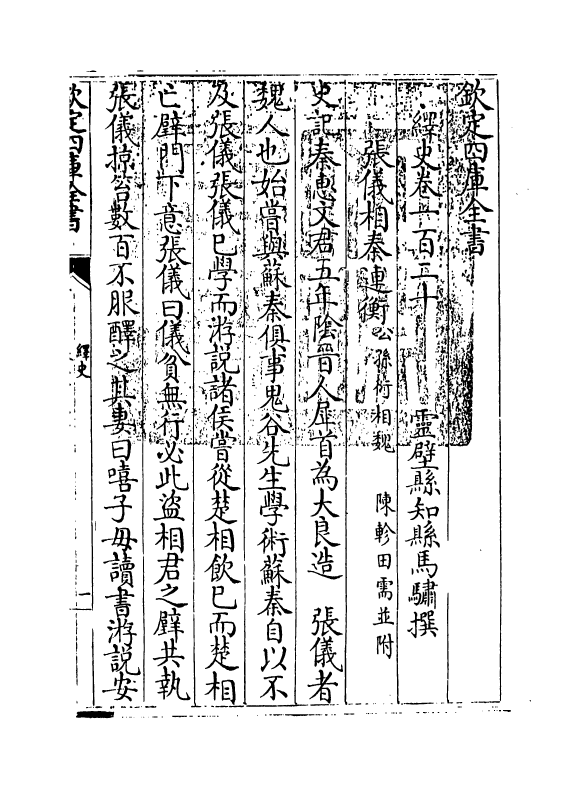 欽定四庫全書
繹史卷一百二十
靈壁縣知縣馬驌撰
張儀相秦連衡公孫衍相魏 陳軫田需並附
史記秦惠文君五年陰晉人犀首為大良造 張儀者
魏人也始嘗與蘇秦俱事鬼谷先生學術蘇秦自以不
及張儀張儀已學而游説諸侯嘗從楚相飲已而楚相
亡璧門下意張儀曰儀貧無行必此盗相君之璧共執
張儀掠笞數百不服醳之其妻曰嘻子毋讀書游説安
欽定四庫全書
繹史
一